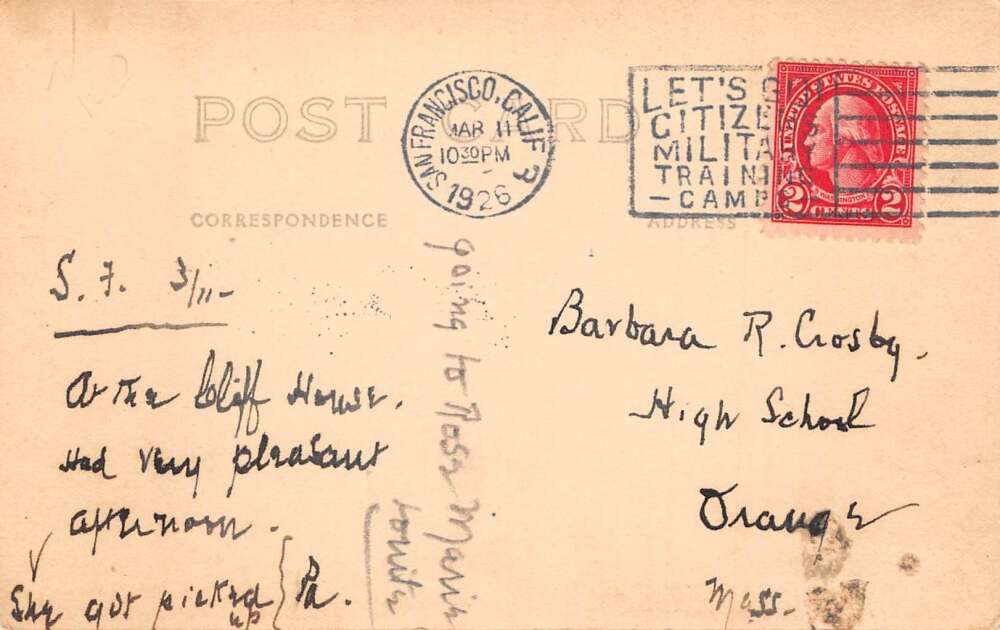 POST CARD
SAN FRANCISCO, CALIF
MAR 11
10 30 PM
1926
LET'S GO!
CITIZENS
MILITARY
TRAINING
- CAMPS
UNITED STATES POSTAGE
WASHINGTON
2 CENTS 2
CORRESPONDENCE
ADDRESS
S. F. 3/11-
At the Cliff House.
Had very pleasant
afternoon.
She got picked up } Pa.
going to Rose Marie
tonite
Barbara R. Crosby,
High School
Orange
Mass.